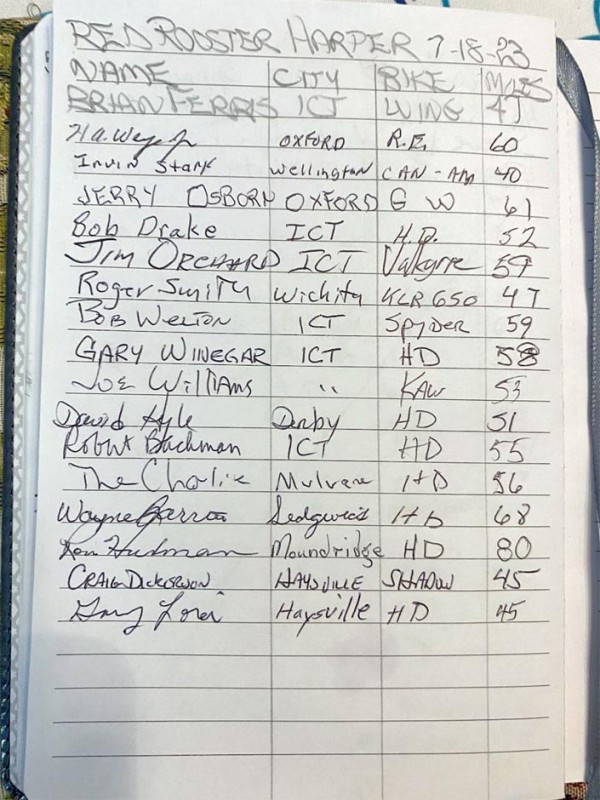 RED ROOSTER HARPER 7-18-23
NAME CITY BIKE MILES
BRIAN FERRIS ICT WING 47
OXFORD R.E. 60
Irvin Stark Wellington CAN-AM 40
JERRY OSBORN OXFORD G W 61
Bob Drake ICT H.D. 52
JIM ORCHARD ICT Valkyrie 59
Roger Smith Wichita KLR 650 47
BOB WELTON ICT SPYDER 59
GARY WINEGAR ICT HD 58
JOE WILLIAMS " KAW 53
David Derby HD 51
Robert Bachman ICT HD 55
The Charlie Mulvane HD 56
Wayne Sedgwick HD 68
Moundridge HD 80
CRAIG DICKERSON HAYSVILLE SHADOW 45
Haysville HD 45